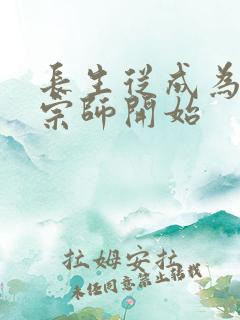 長生從成為
宗師開始
拉姆安拉
未经同意禁止转载